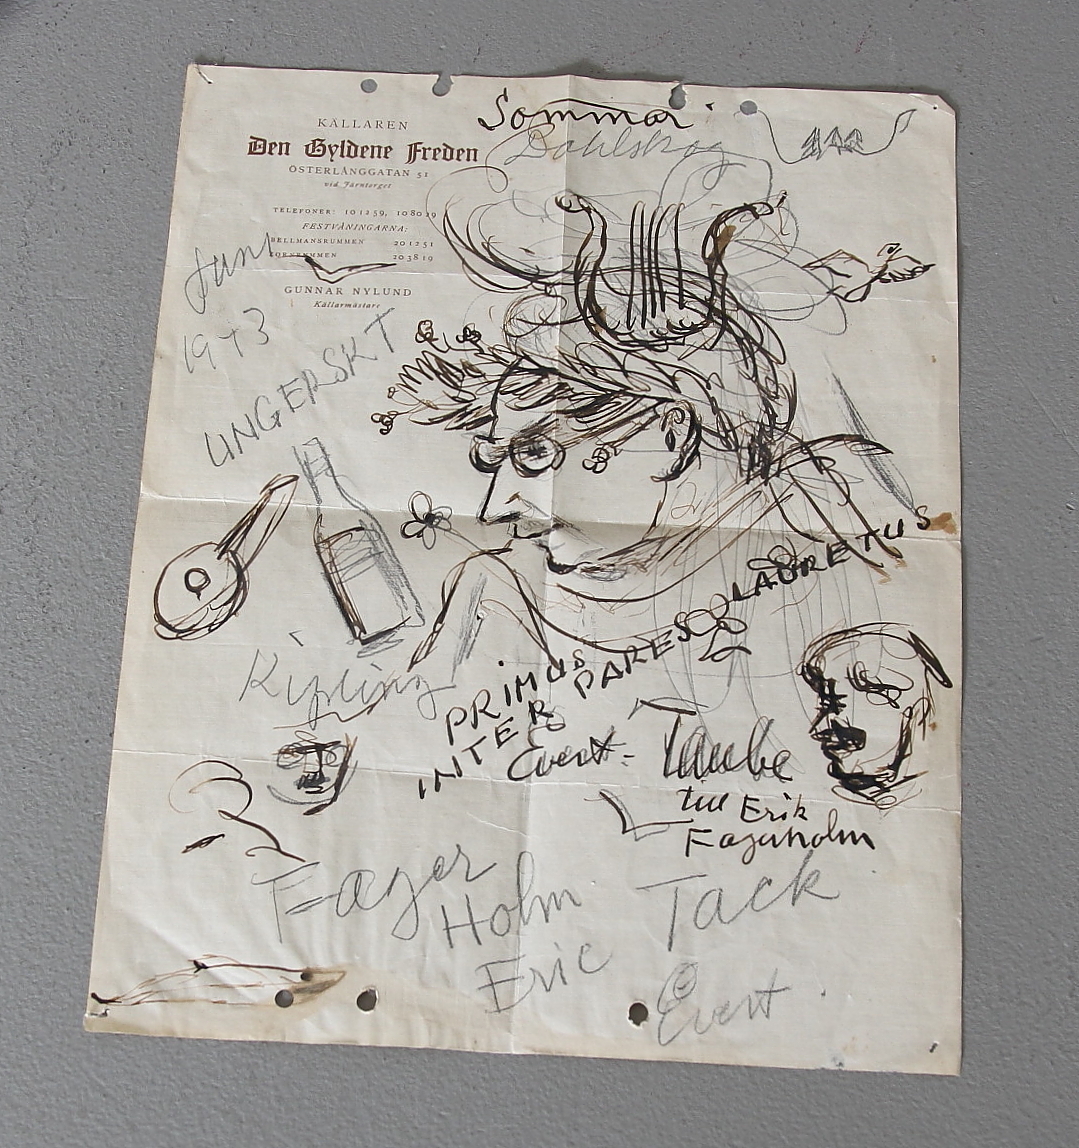 Sommar
Dahlskog
KÄLLAREN
Den Gyldene Freden
ÖSTERLÅNGGATAN 51
vid Järntorget
TELEFONER: 101259, 108029
FESTVÅNINGARNA:
BELLMANSRUMMEN 201251
203819
GUNNAR NYLUND
Källarmästare
Juni
1943
UNGERSKT
Kipling
PRIMUS
INTER PARES
LAURETUS
Evert Taube
till Erik
Fagerholm
Fager
Holm
Eric
Tack
Evert